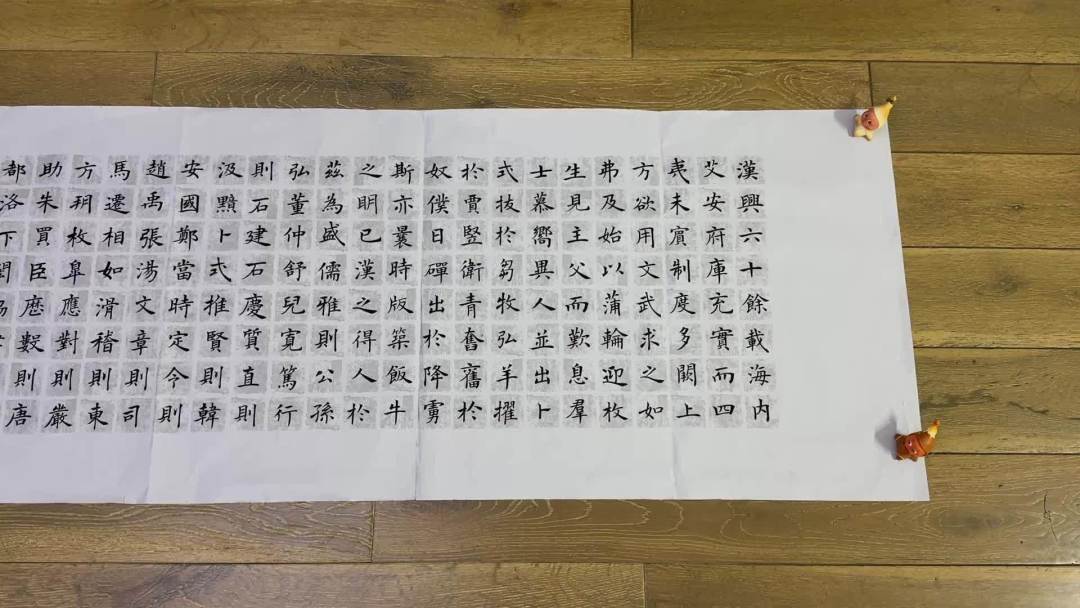 漢興六十餘載海內
艾安府庫充實而四
夷未賓制度多闕上
方欲用文武求之如
弗及始以蒲輪迎枚
生見主父而歎息羣
士慕嚮異人並出卜
式拔於芻牧弘羊擢
於賈竪衛青奮舊於
奴僕日磾出於降虜
斯亦曩時版築飯牛
之明已漢之得人於
茲為盛儒雅則公孫
弘董仲舒兒寬篤行
則石建石慶質直則
汲黯卜式推賢則韓
安國鄭當時定令則
趙禹張湯文章則司
馬遷相如滑稽則東
方朔枚皋應對則嚴
助朱買臣歷數則唐
都洛下閎